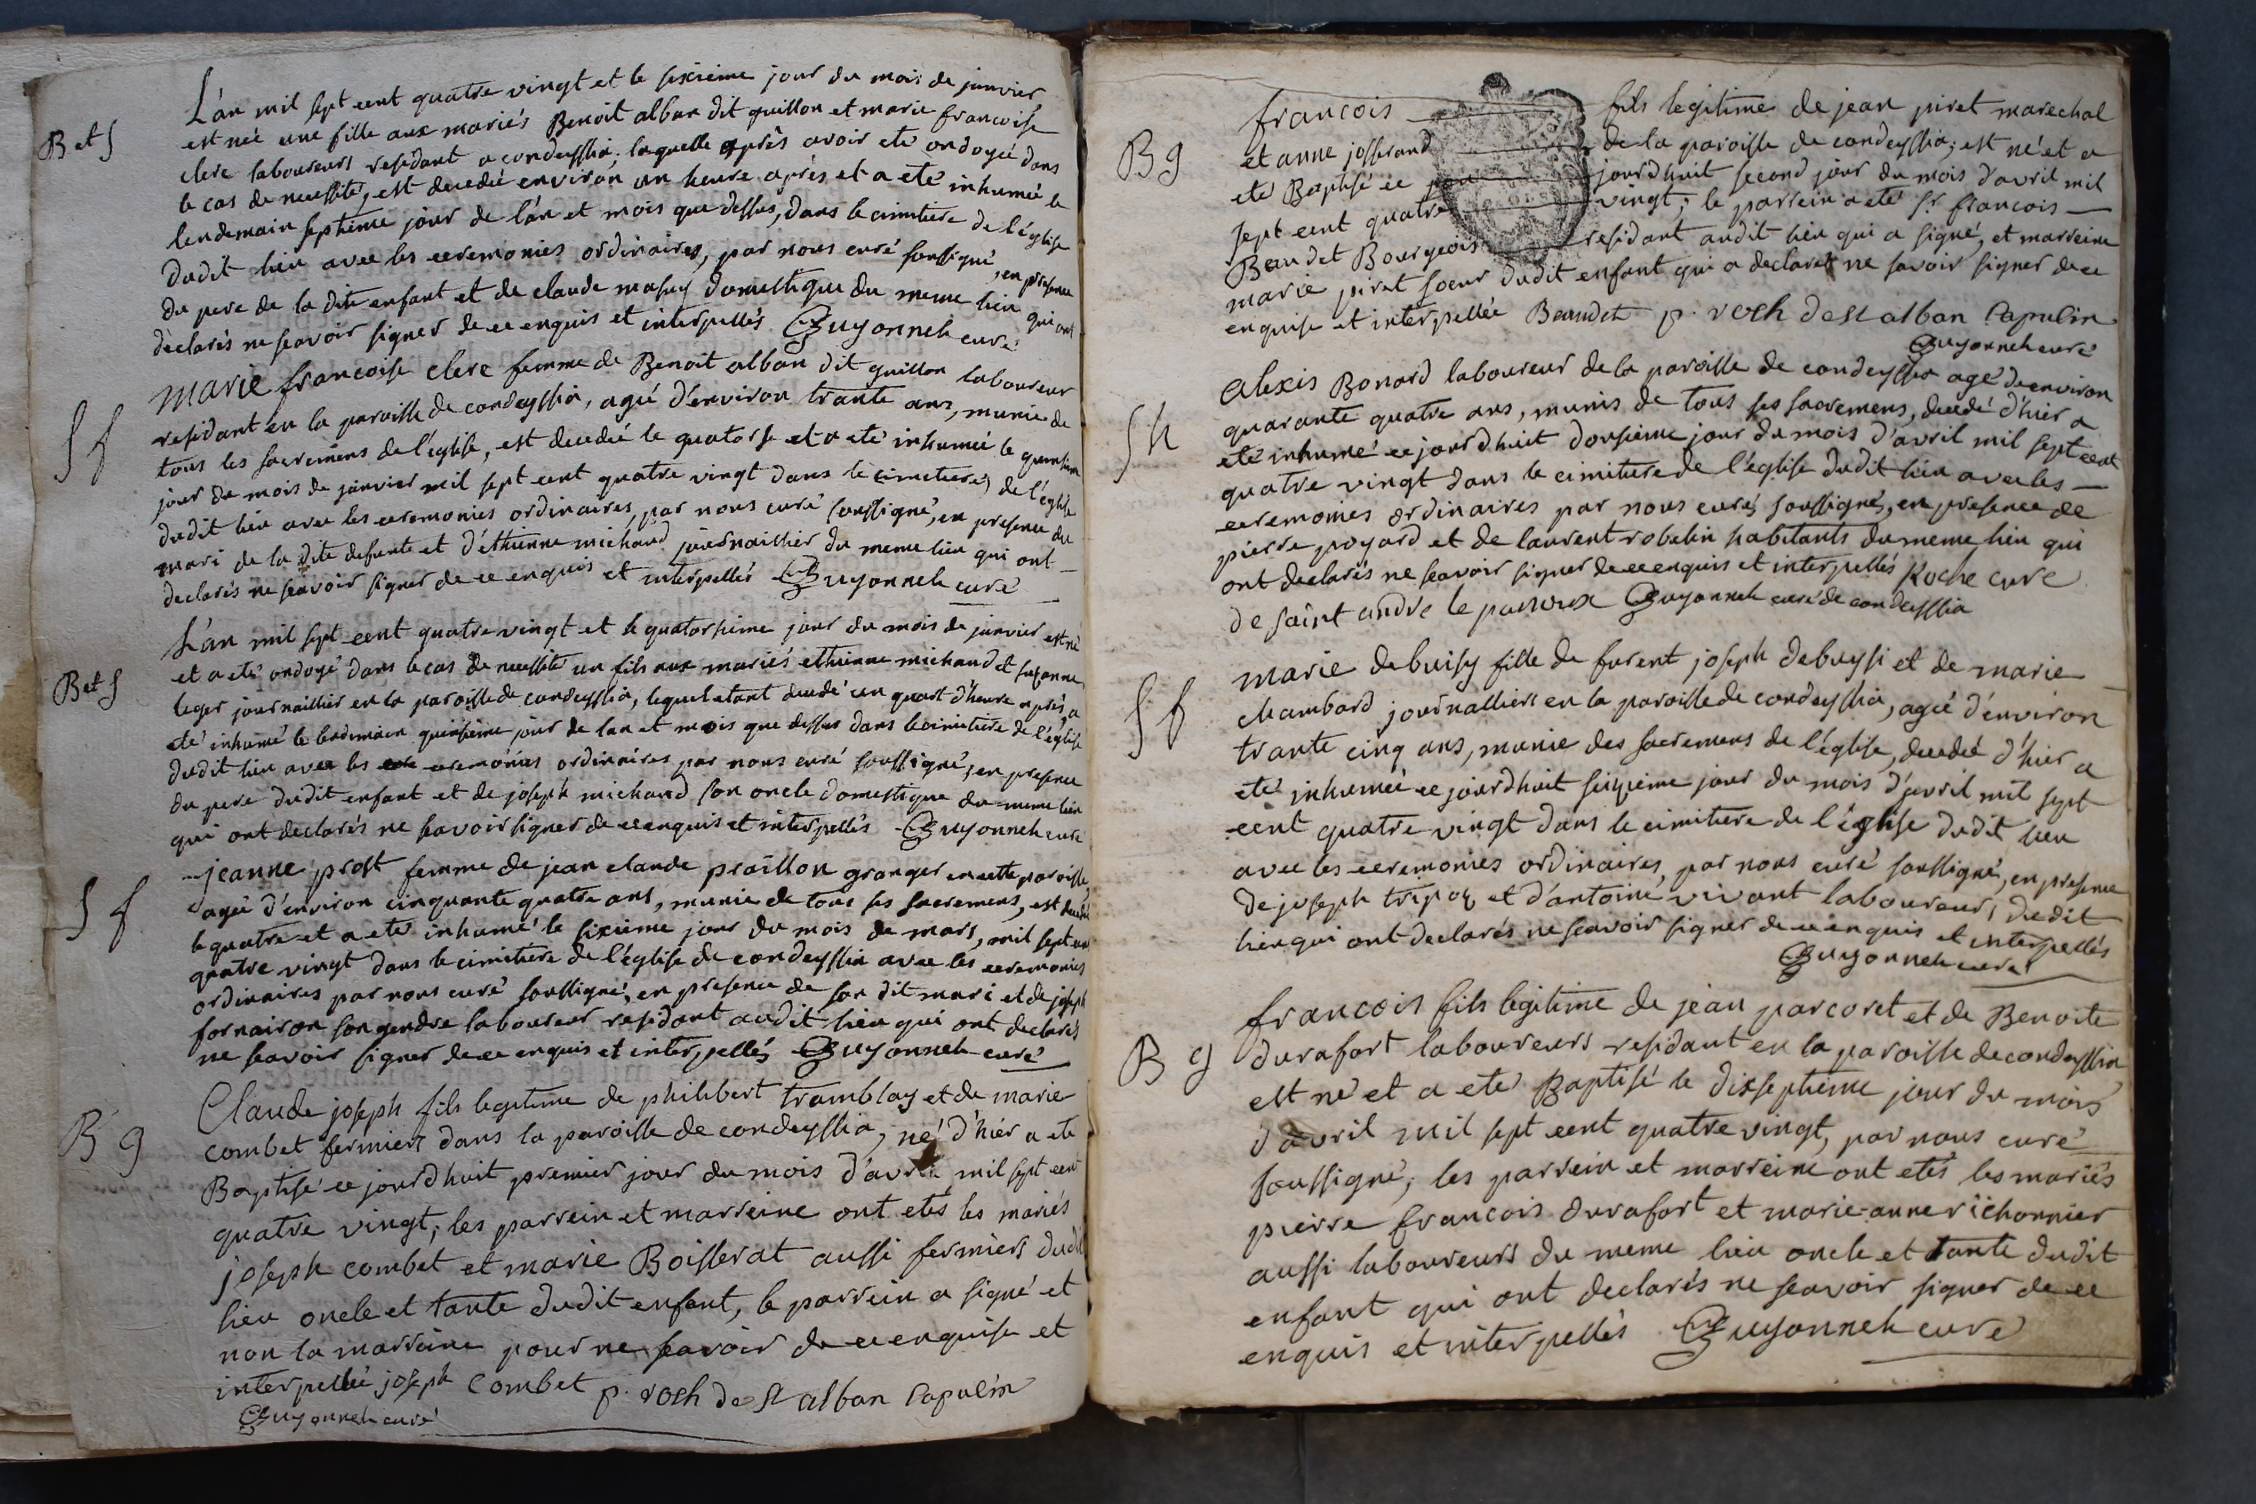 L'an mil sept cent quatre vingt et le sixieme jour du mois de janvier
B et S
est née une fille aux mariés Benoit alban dit guillon et marie francoise
clerc laboureurs residant a condeyssia, laquelle après avoir eté ondoyée dans
le cas de necessité, est decedée environ un heure après et a eté inhumée le
lendemain septieme jour de l'an et mois que dessus, dans le cimitiere de l'église
dudit lieu avec les ceremonies ordinaires, par nous curé soussigné, en presence
du pere de la dite enfant et de claude domestique du meme lieu qui ont
declarés ne scavoir signer de ce enquis et interpellés Guyonneh curé
Sf
marie francoise clerc femme de Benoit alban dit guillon laboureur
residant en la paroisse de condeyssia, agée d'environ trante ans, munie de
tous les sacremens de l'église, est decedée le quatorse et a eté inhumée le quinsieme
jour du mois de janvier mil sept cent quatre vingt dans le cimetiere de l'église
dudit lieu avec les ceremonies ordinaires, par nous curé soussigné, en presence du
mari de la dite defunte et d'ethienne michaud journaillier du meme lieu qui ont
declarés ne scavoir signer de ce enquis et interpellés Guyonneh curé
B et S
L'an mil sept cent quatre vingt et le quatorsieme jour du mois de janvier est né
et a eté ondoyé dans le cas de necessité un fils aux mariés ethienne michaud et suzanne
leger journaillier en la paroisse de condeyssia, lequel etant decedé un quart d'heure après, a
eté inhumé le lendemain quinsieme jour de lan et mois que dessus dans le cimitiere de l'église
dudit lieu avec les ceremonies ordinaires par nous curé soussigné, en presence
du pere dudit enfant et de joseph michaud son oncle domestique du meme lieu
qui ont declarés ne scavoir signer de ce enquis et interpellés Guyonneh curé
Sf
jeanne prost femme de jean claude praillon granger en cette paroisse
agée d'environ cinquante quatre ans, munie de tous ses sacremens, est decedée
le quatre et a eté inhumé le sixieme jour du mois de mars, mil sept cent
quatre vingt dans le cimitiere de l'église de condeyssia avec les ceremonies
ordinaires par nous curé soussigné, en presence de son dit mari et de joseph
fornairon son gendre laboureur residant audit lieu qui ont declarés
ne scavoir signer de ce enquis et interpellés Guyonneh curé
B g
Claude joseph fils legitime de philibert tramblay et de marie
combet fermiers dans la paroisse de condeyssia, né d'hier a eté
Baptisé ce jourdhuit premier jour du mois d'avril mil sept cent
quatre vingt, les parrein et marreine ont etés les mariés
joseph combet et marie Boisserat aussi fermiers dudit
lieu oncle et tante dudit enfant, le parrein a signé et
non la marreine pour ne scavoir de ce enquise et
interpellée joseph Combet p. roch de st alban Capucin
Guyonneh curé
B g
francois fils legitime de jean piret marechal
et anne josserand de la paroisse de condeyssia, est né et a
eté Baptisé ce jourdhuit second jour du mois d'avril mil
sept cent quatre vingt; le parrein a eté Sr. francois
Baudet Bourgeois residant audit lieu qui a signé, et marreine
marie piret soeur dudit enfant qui a declaré ne savoir signer de ce
enquise et interpellée Beaudet p. roch de st alban Capucin
Guyonneh curé
Sh
alexis Bonard laboureur de la paroisse de condeyssia agé de environ
quarante quatre ans, munis de tous ses sacremens, decedé d'hier a
eté inhumé ce jourdhuit dousieme jour du mois d'avril mil sept cent
quatre vingt dans le cimitiere de l'église dudit lieu avec les
ceremonies ordinaires par nous curés soussignés, en presence de
pierre poyard et de laurent robelin habitants du meme lieu qui
ont declarés ne scavoir signer de ce enquis et interpellés Roche curé
de saint andre le Guyonneh curé de condeyssia
Sf
marie debuisy fille de furent joseph debuysi et de marie
chambard journalliers en la paroisse de condeyssia, agée d'environ
trante cinq ans, munie des sacremens de l'église, decedée d'hier a
eté inhumée ce jourdhuit seizieme jour du mois d'avril mil sept
cent quatre vingt dans le cimitiere de l'église dudit lieu
avec les ceremonies ordinaires, par nous curé soussigné, en presence
de joseph tripoz et d'antoine vivant laboureurs dudit
lieu qui ont declarés ne scavoir signer de ce enquis et interpellés
Guyonneh curé
B g
francois fils legitime de jean parcoret et de Benoite
durafort laboureurs residant en la paroisse de condeyssia
est né et a eté Baptisé le dixseptieme jour du mois
d'avril mil sept cent quatre vingt, par nous curé
soussigné, les parrein et marreine ont etés les mariés
pierre francois durafort et marie-anne richonnier
aussi laboureurs du meme lieu oncle et tante dudit
enfant qui ont declarés ne scavoir signer de ce
enquis et interpellés Guyonneh curé